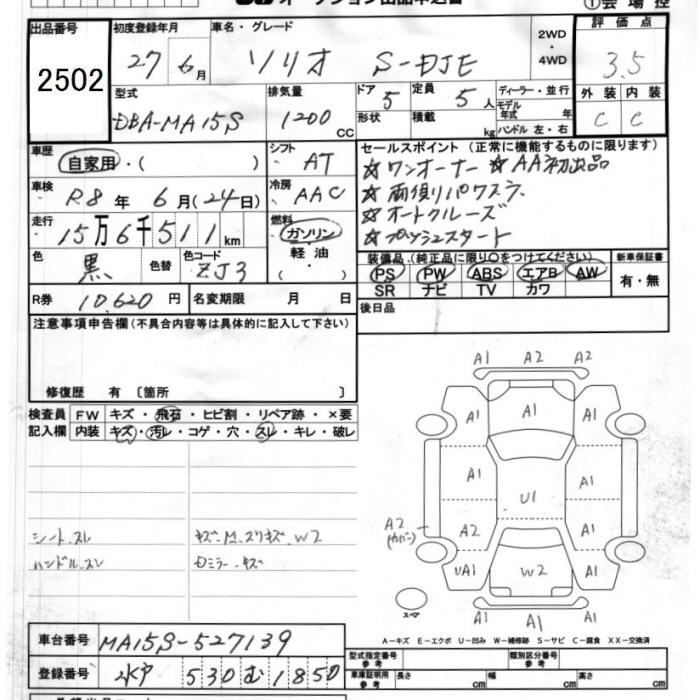 ①会場控
出品番号 2502
初度登録年月 27 6月
車名・グレード ソリオ S-DJE
2WD・4WD
評価点 3.5
型式 DBA-MA15S
排気量 1200 CC
ドア 5 形状
定員 5人 積載 kg
ディーラー・並行
モデル年式 年
ハンドル 左・右
外装 C 内装 C
車歴 自家用・( )
シフト AT
車検 R8年 6月(24日)
冷房 AAC
走行 15万6千511km
燃料 ガソリン・軽油・( )
色 黒 色替 色コード ZJ3
R券 10,620円
名変期限 月 日
セールスポイント(正常に機能するものに限ります)
☆ワンオーナー ☆AA初出品
☆両側リパワスラ
☆オートクルーズ
☆プッシュスタート
装備品(純正品に限り○をつけてください)
PS PW ABS エアB AW
SR ナビ TV カワ
新車保証書 有・無
後日品
注意事項申告欄(不具合内容等は具体的に記入して下さい)
修復歴 有 〔箇所 〕
検査員記入欄
FW キズ・飛石・ヒビ割・リペア跡・×要
内装 キズ・汚レ・コゲ・穴・スレ・キレ・破レ
シート.スレ
ハンドル.スレ
キズ.M.スリキズ.W2
Dミラー.キズ
A1 A2 A2
A1 A1 A1
A1 A1
U1
A2(カバー) A2 A1
UA1 W2 A1
A1 A1
スペア
A-キズ E-エクボ U-凹み W-補修跡 S-サビ C-腐食 XX-交換済
車台番号 MA15S-527139
登録番号 水戸 530 む 1850
型式指定番号 参考
類別区分番号 参考
車庫証明用 参考 長さ cm 幅 cm 高さ cm